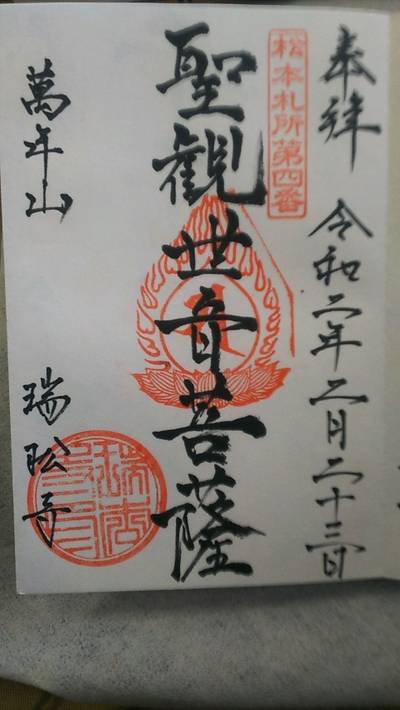 奉拝 令和二年二月二十三日
松本札所第四番
聖観世音菩薩
萬年山 瑞松寺